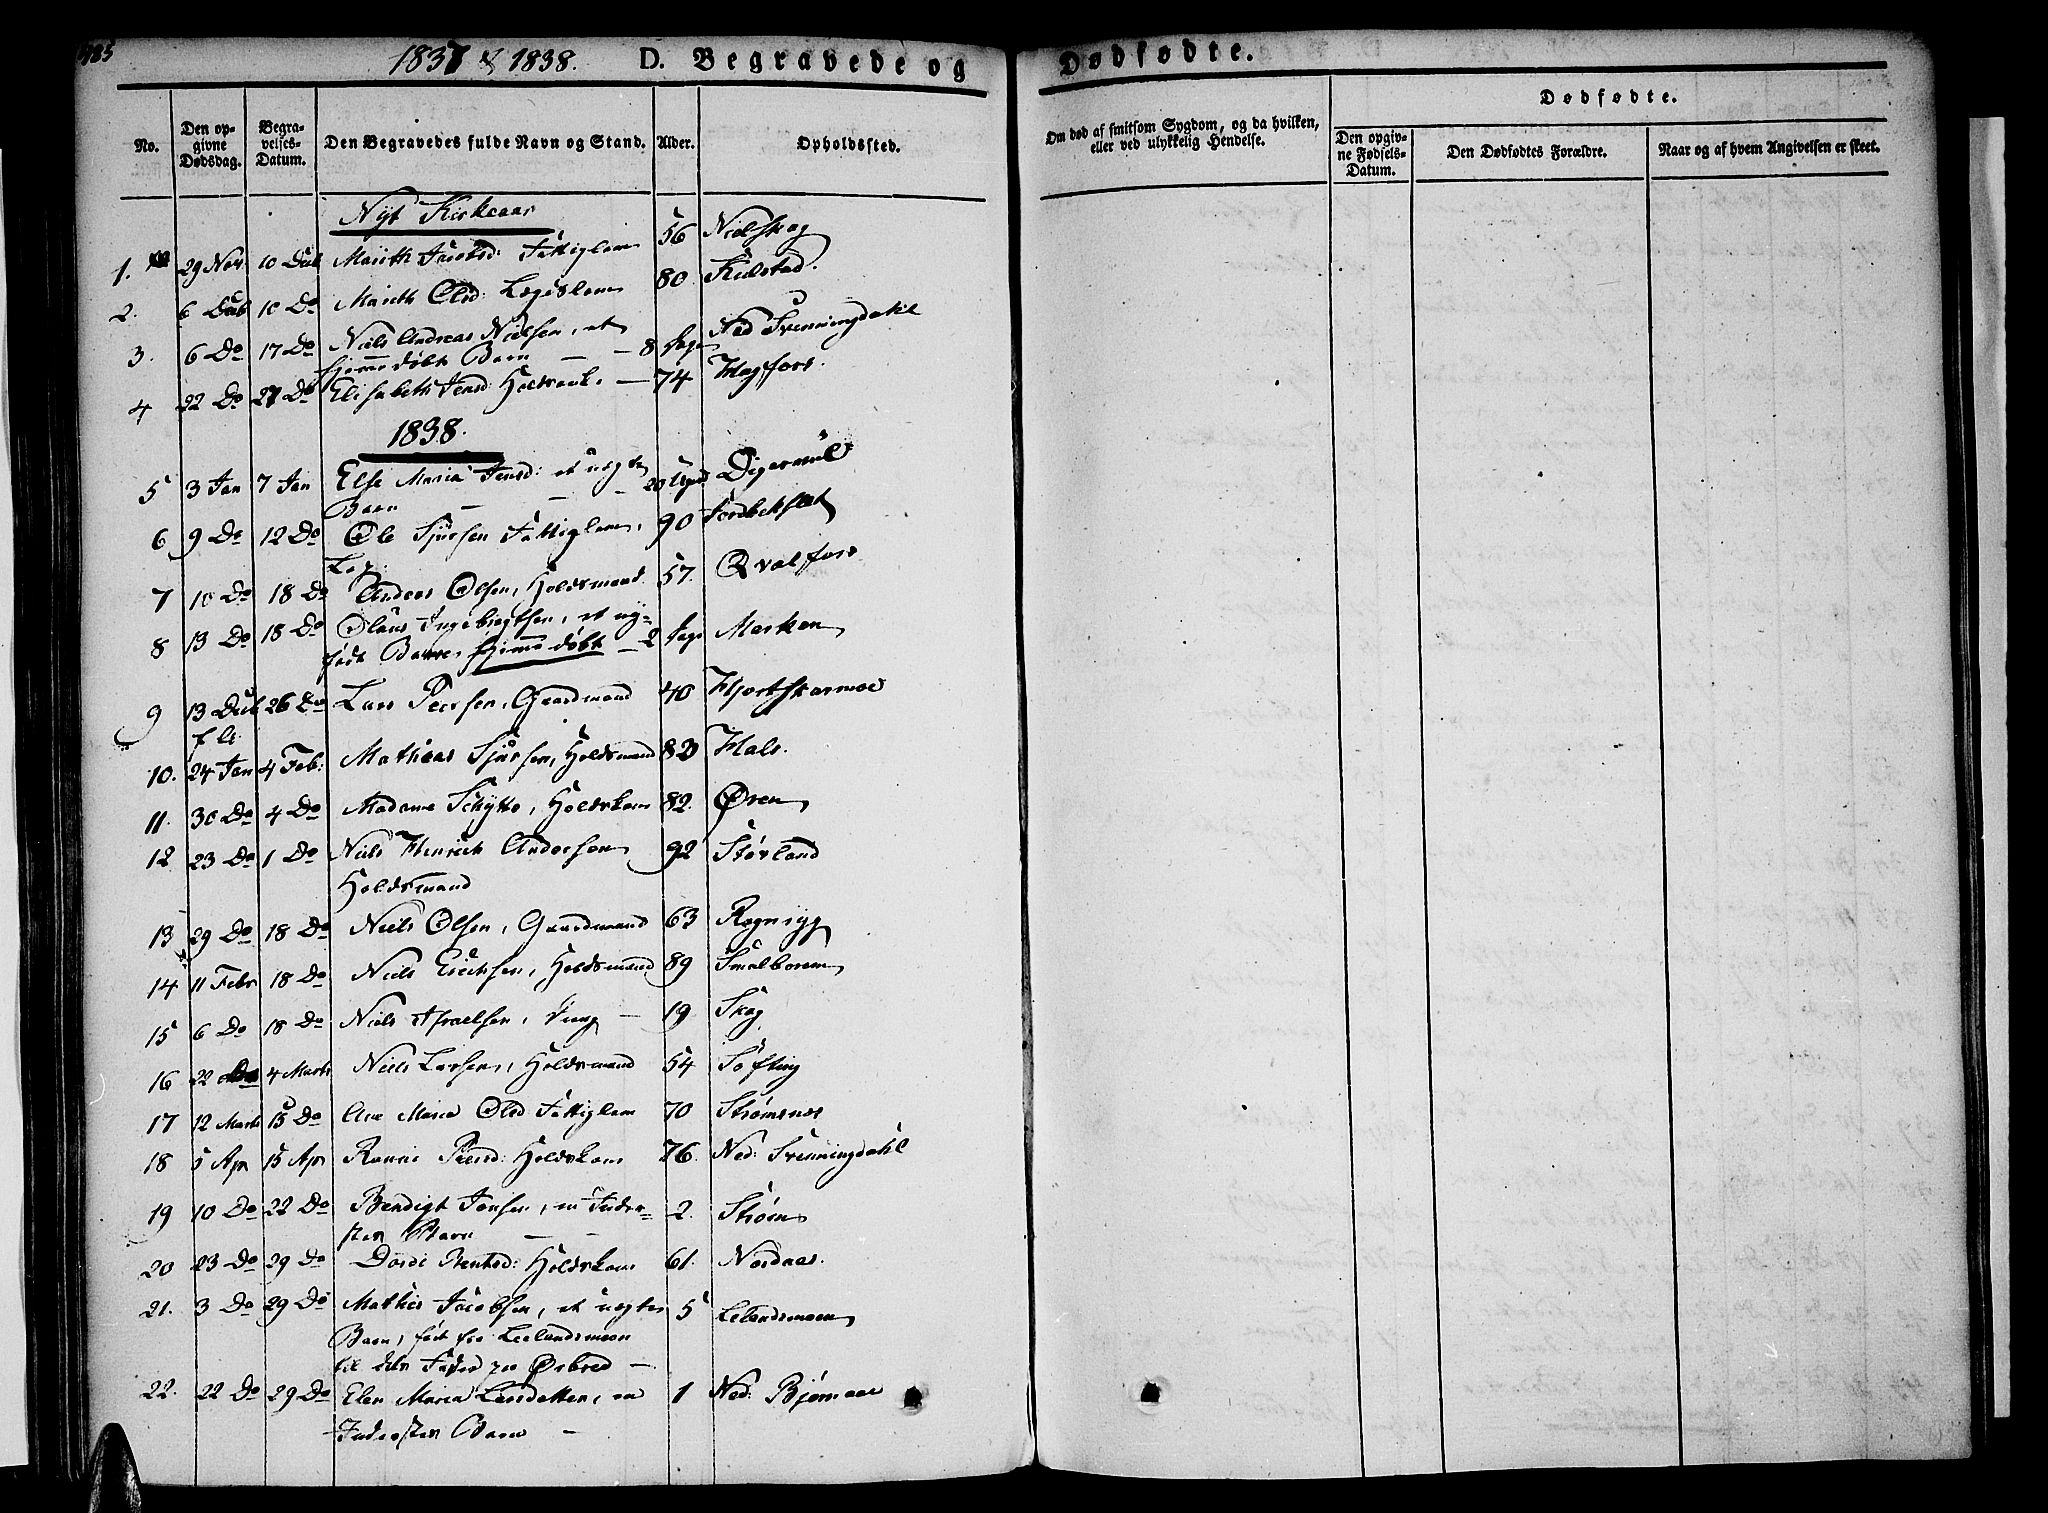 1837 & 1838. D. Begravede og Dødfødte.
No.
Den opgivne Dødsdag.
Begravelses-Datum.
Den Begravedes fulde Navn og Stand.
Alder.
Opholdssted.
Om død af smitsom Sygdom, og da hvilken, eller ved ulykkelig Hendelse.
Dødfødte.
Den opgivne Fødsels-Datum.
Den Dødfødtes Forældre.
Naar og af hvem Angivelsen er skeet.
Nyt Kirkeaar
1. 29 Nov. 10 Dec Mareth Jacobsd: Fattiglem 56 Nielskog
2. 6 Dec 10 Do Mareth Olsd: Lægdslem 80 Kulstad.
3. 6 Do 17 Do Niels Andreas Nielsen, et
hjemmedøbt Barn — — 8 Dage Ned Svenningdahl
4 22 Do 27 Do Elisabeth Jensd: Holdsenke — 74 Hagfors.
1838.
5 3 Jan 7 Jan Else Maria Jensd: et uægte
Barn — — 20 Uger Digermul
6 9 Do 12 Do Ole Sjursen Fattiglem, 90
7 10 Do 18 Do Anders Olsen, Holdsmand 57. Qvalfors
8 13 Do 18 Do Olaus Ingebrigtsen, et ny-
født Barn, hjemmedøbt — 2 Dage Marken
9 13 Dec 26 Do Lars Peersen, Gaardmand 40 Hjortskarmoe
f. A.
10. 24 Jan 4 Feb: Mathias Sjursen, Holdsmand 82 Hals.
11. 30 Do 4 Do Madame Schytte, Holdskone 82. Øren
12 23 Do 1 Do Niels Henrich Andersen 92 Størland
Holdsmand
13 29 Do 18 Do Niels Olsen, Gaardmand 63 Rognryg
14 11 Febr 18 Do Niels Erichsen, Holdsmand 89 Smalborem
15 6 Do 18 Do Niels Israelsen, Dreng — 19 Skog
16 22 Do 4 Marts Niels Larsen, Holdsmand 54 Søfting
17 12 Marts 15 Do Ane Maria Olsd Fattiglem 70 Strømsnes
18 5 Apr 15 Apr Ranni Peersd: Holdskone 76. Ned: Svenningdahl
19 10 Do 22 Do Bendigt Jonsen, en Inder-
sten Barn — — 2. Strøm
20 23 Do 29 Do Dordi Bentsd: Holdskone 61. Nordaas.
21. 3 Do 29 Do Mathis Jacobsen, et uægte 5 Lelandsmoen
Barn, ført fra Leelandsmoen
til dets Fader paa
22. 22 Do 29 Do Elen Maria Larsdatter, en 1 Ned: Bjørnaae
Indersten Barn —